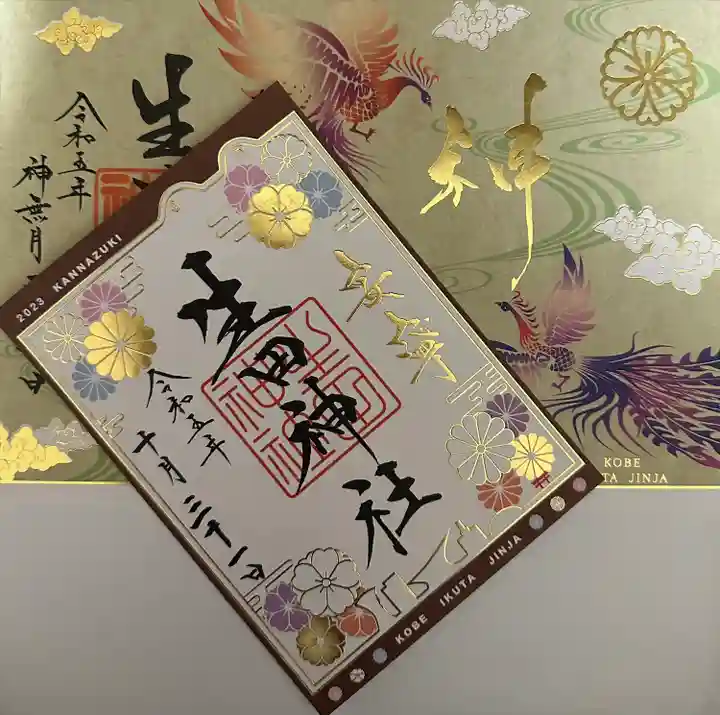 奉拝
生田神社
令和五年
十月三十一日
2023 KANNAZUKI
KOBE IKUTA JINJA
奉拝
生
令和五年
神無月
日
KOBE
TA JINJA